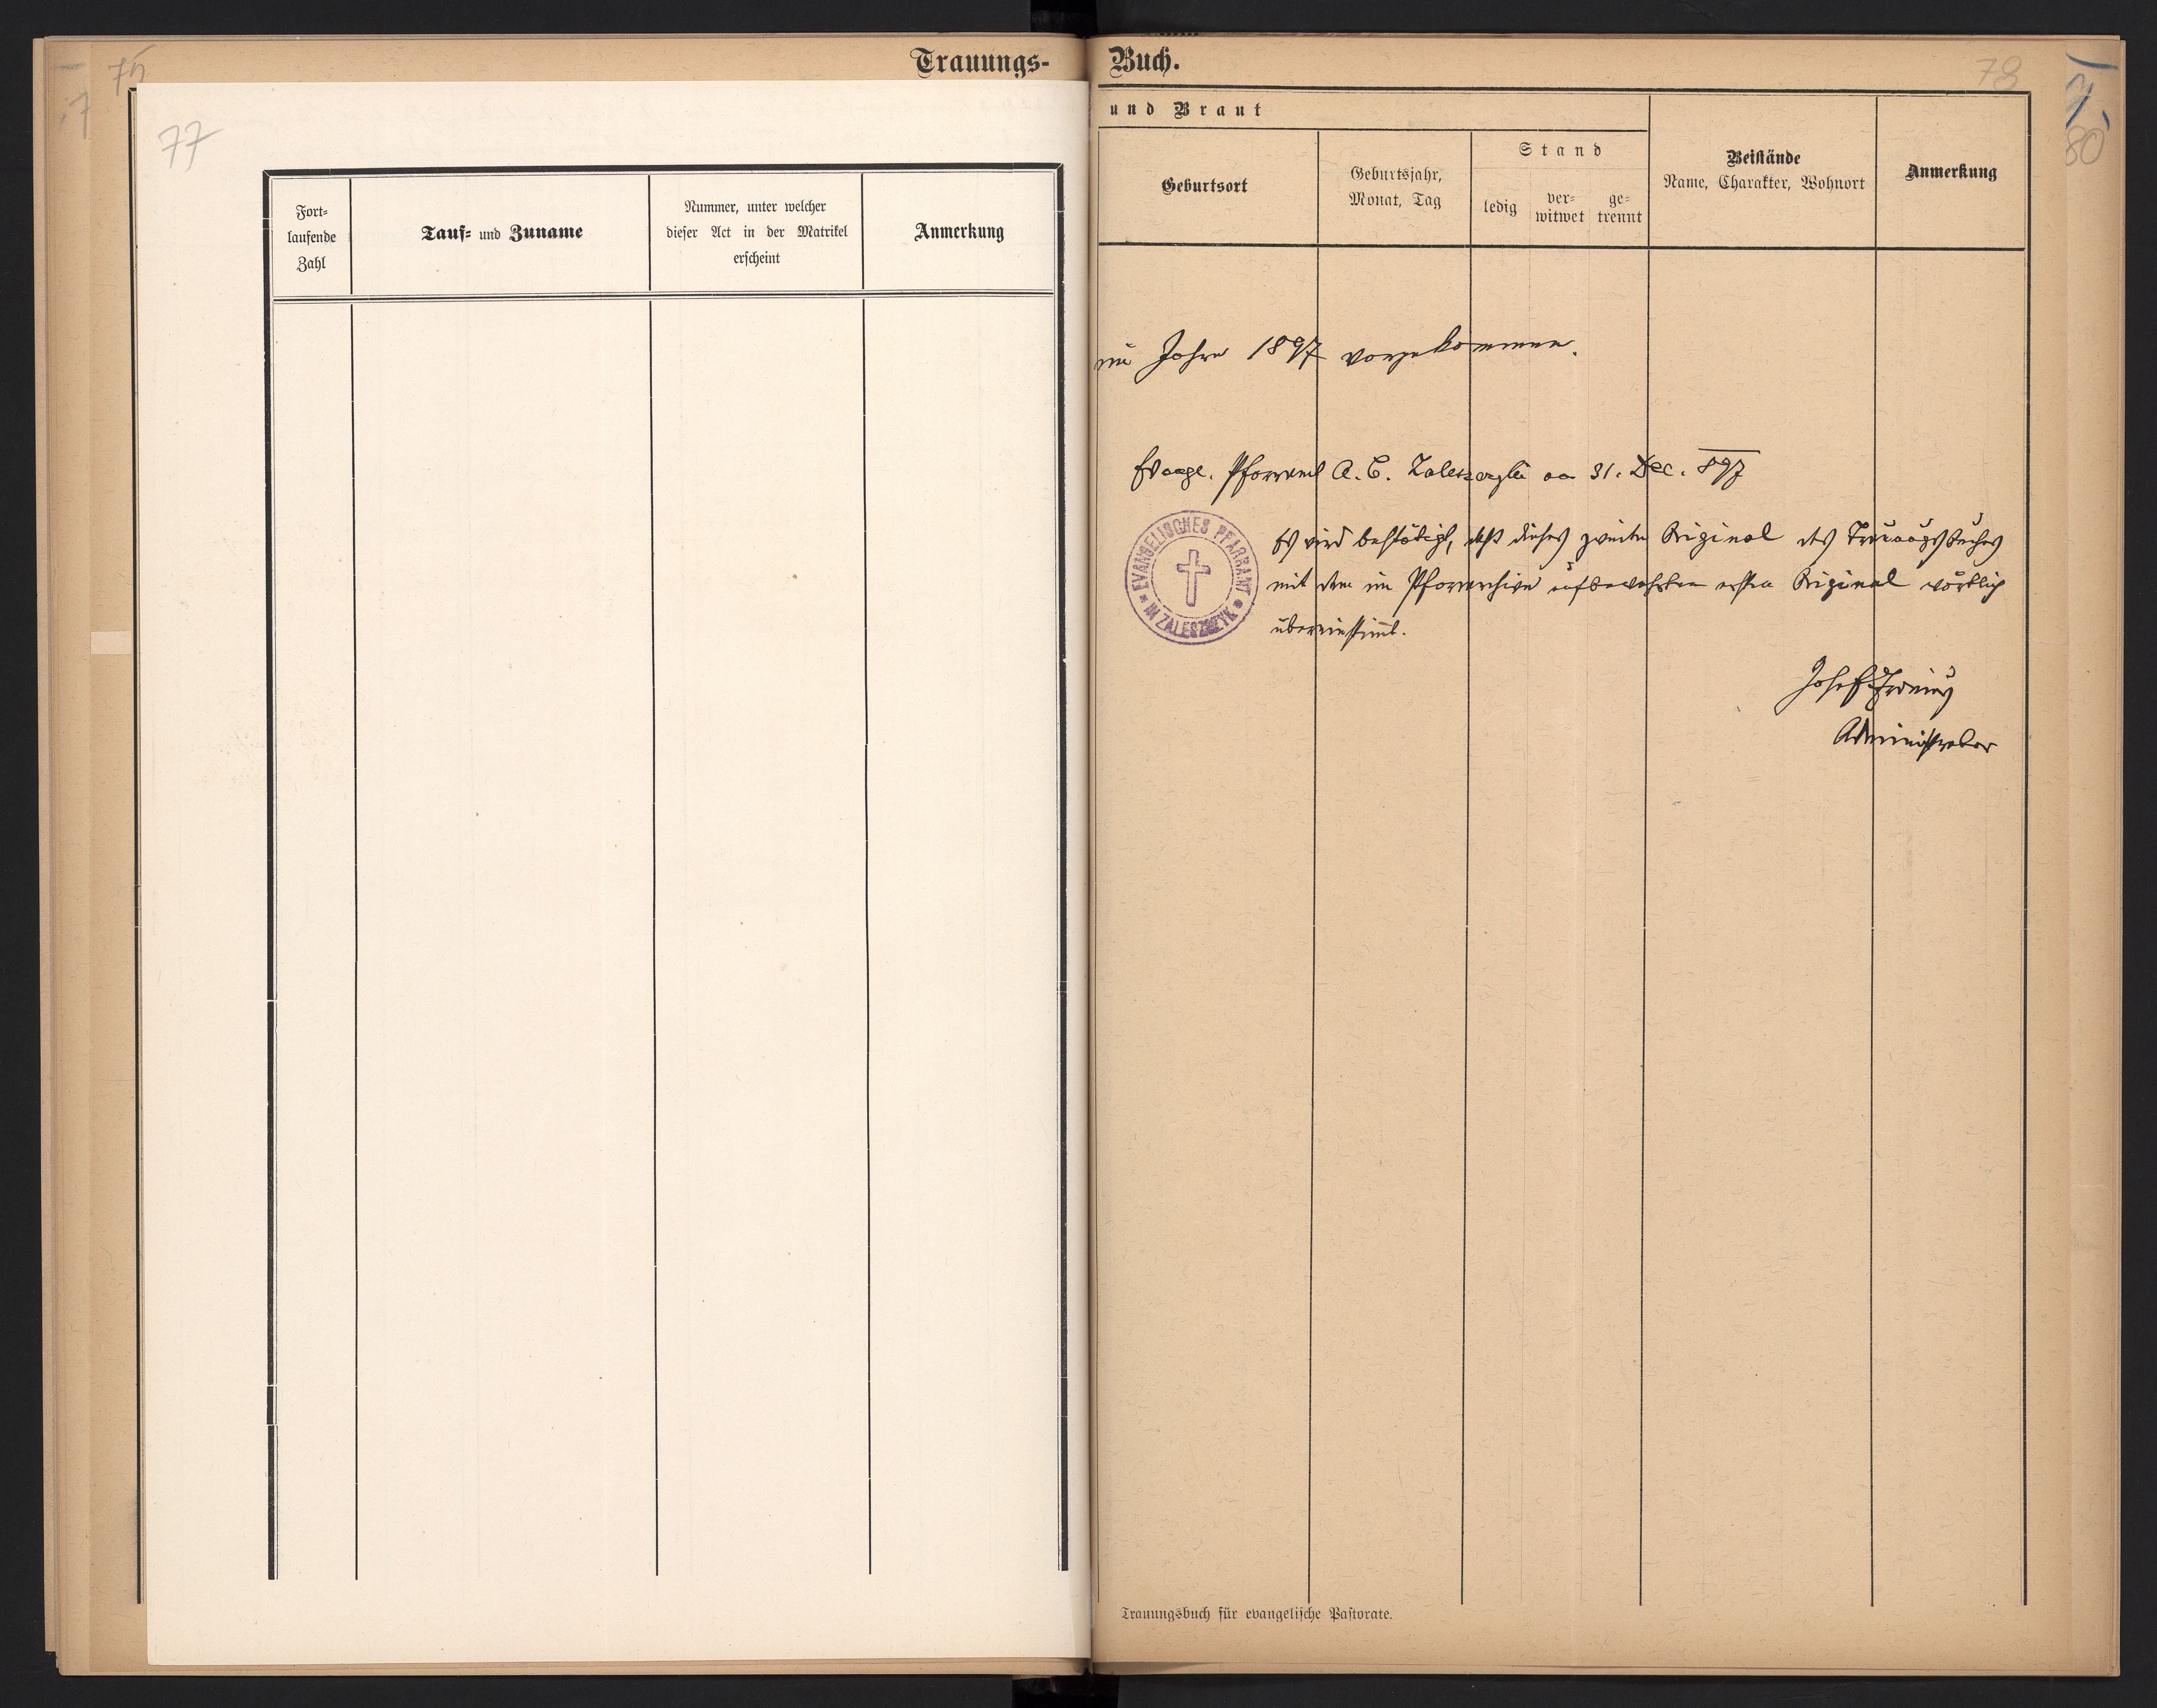 Trauungs-
75
77
Fort-
laufende
Zahl
Tauf- und Zuname
Nummer, unter welcher
dieser Act in der Matrikel
erscheint
Anmerkung
Buch.
78
80
und Braut
Geburtsort
Geburtsjahr,
Monat, Tag
Stand
ledig
ver-
witwet
ge-
trennt
Beistände
Name, Charakter, Wohnort
Anmerkung
im Jahre 1897 vorgekommen.
Evange. Pfarramt A. C. Zaleszczyki am 31. Dec. 897
EVANGELISCHES PFARRAMT
IN ZALESZCZYK
Es wird bestätigt, daß dieses zweite Original des Trauungsbuches
mit dem im Pfarrarchive aufbewahrten ersten Original wörtlich
übereinstimmt.
Josef
Administrator
Trauungsbuch für evangelische Pastorate.